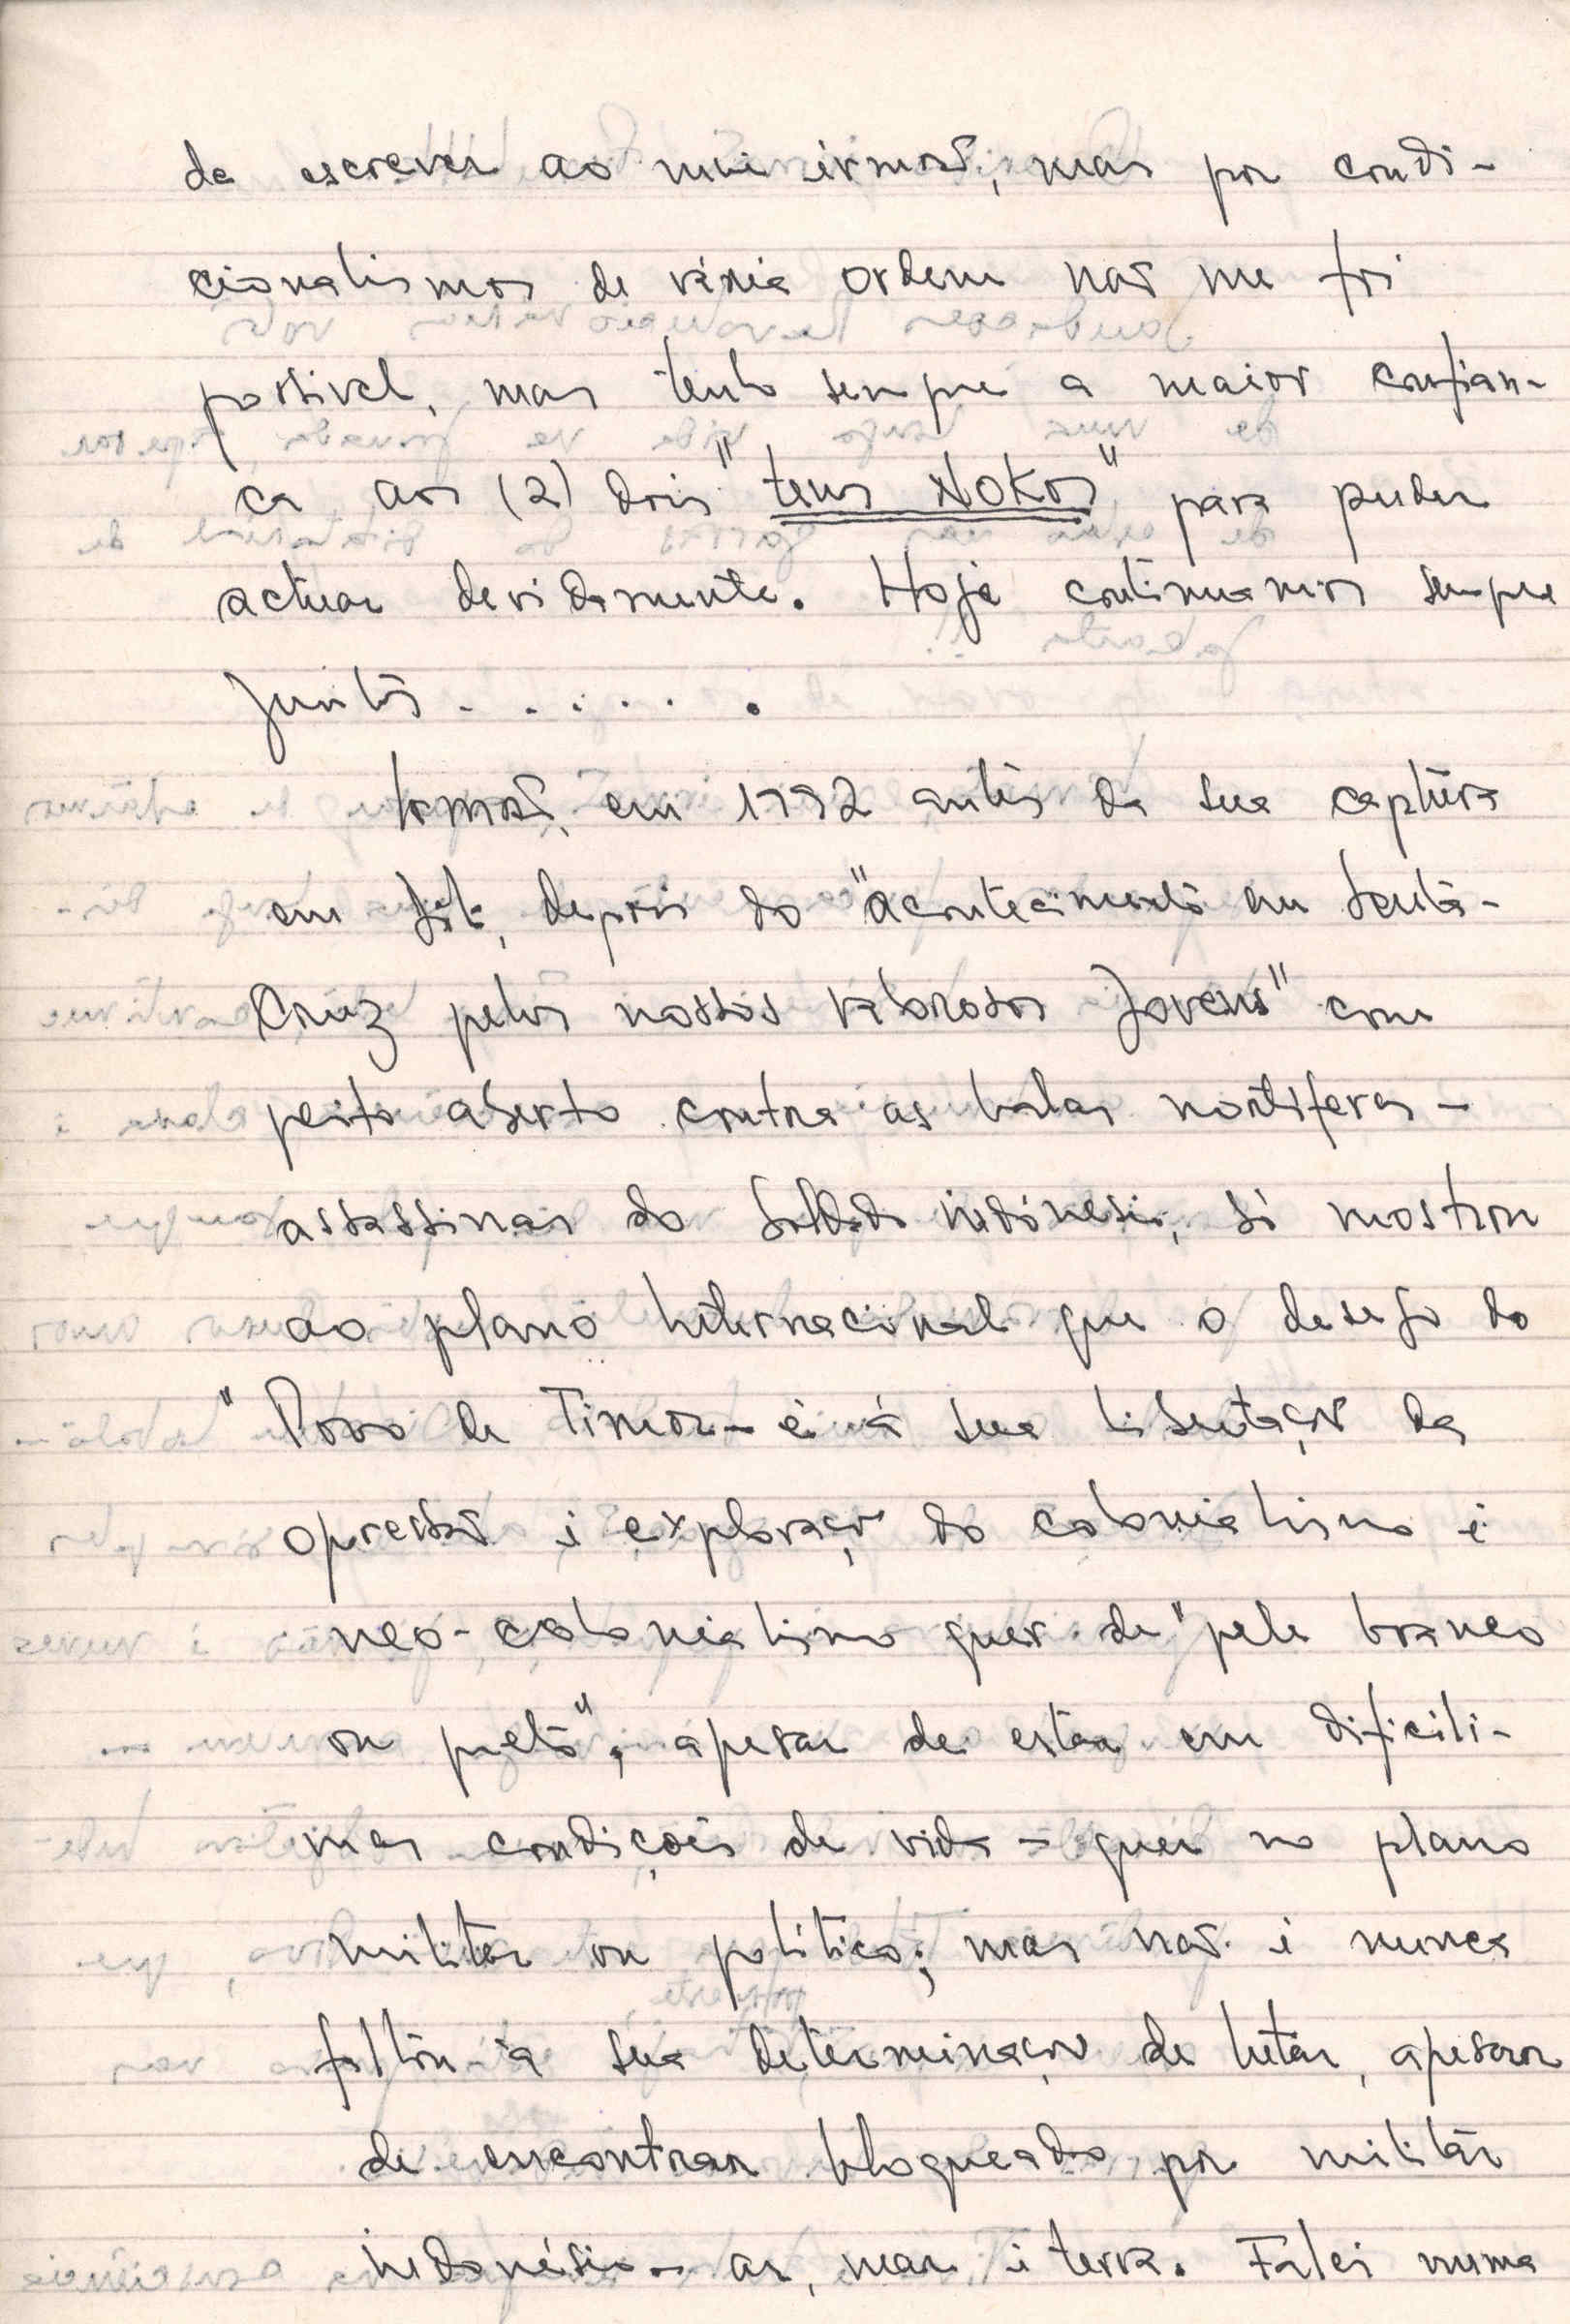 de escrever ao meu irmaõ, mas por condi-
cionalismos de vária ordem naõ me foi
possivel, mas tenho sempre a maior confian-
ca aos (2) dois "teus NOKOS" para puder
actuar devidamente. Hoje continuamos sempre
Juntos . . . . . .
Irmaõ, em 1992 antes da sua captura
em Dili, depois do "acontecimento em Santa-
Cruz pelos nossos valorosos Jovens" com
peito aberto contra as balas mortiferas -
assassinas do soldado indónesio, só mostrou
ao plano Internacional que o desejo do
"Povo de Timor - é á sua libertaçaõ da
opressaõ i exploraçaõ do colonialismo é
neo-colonialismo quer de "pele branco
ou preto", apesar de estar em dificili-
mas condiçoẽs de vida - quer no plano
militar ou politico; mas naõ i nunca
faltou-à sua determinaçaõ de lutar, apesar
de encontrar bloqueado por militar
indonésio - ar, mar i terra. Falei numa